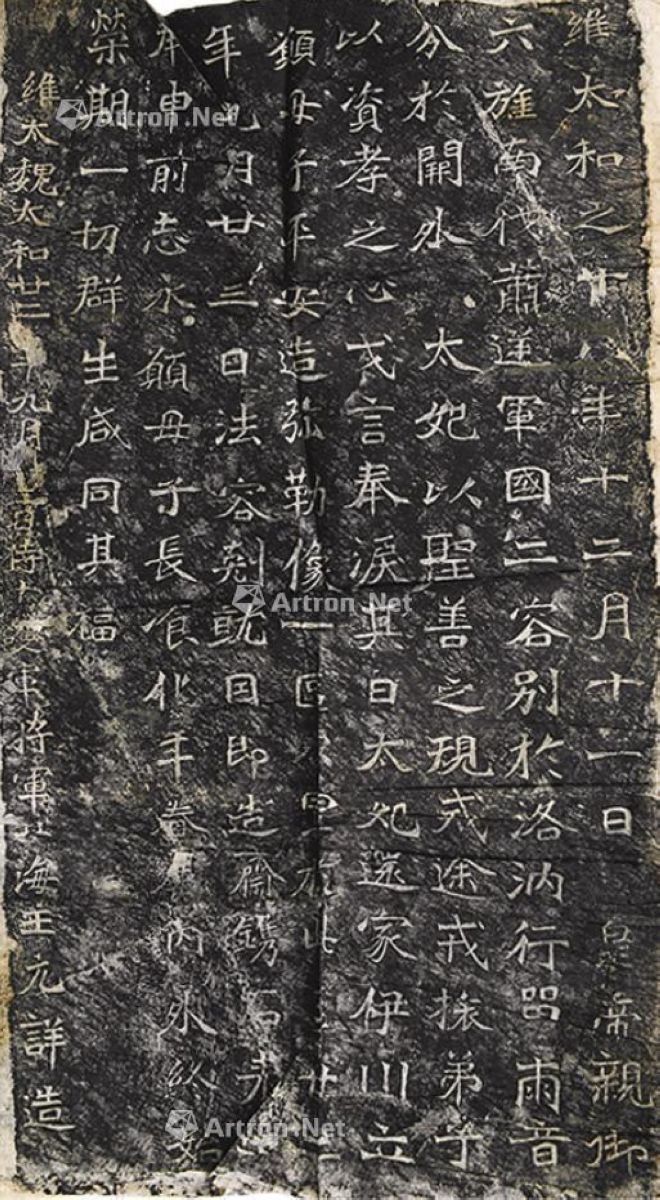 維太和之十八年十二月十一日皇帝親御
六旌南伐蕭逆軍國二容別於洛汭行留兩音
分於關外太妃以聖善之規戒途戒旅弟子
以資孝之心戈言奉淚其日太妃還家伊川立
願母子平安造弥勒像一區以置於此至廿二
年九月廿三日法容剋就因即造齋鐫石
申前志永願母子長飡化年眷屬內外終始
榮期一切群生咸同其福
維大魏太和廿二年九月廿三日侍中護軍將軍北海王元詳造
Artron.Net
Artron.Net
Artron.Net